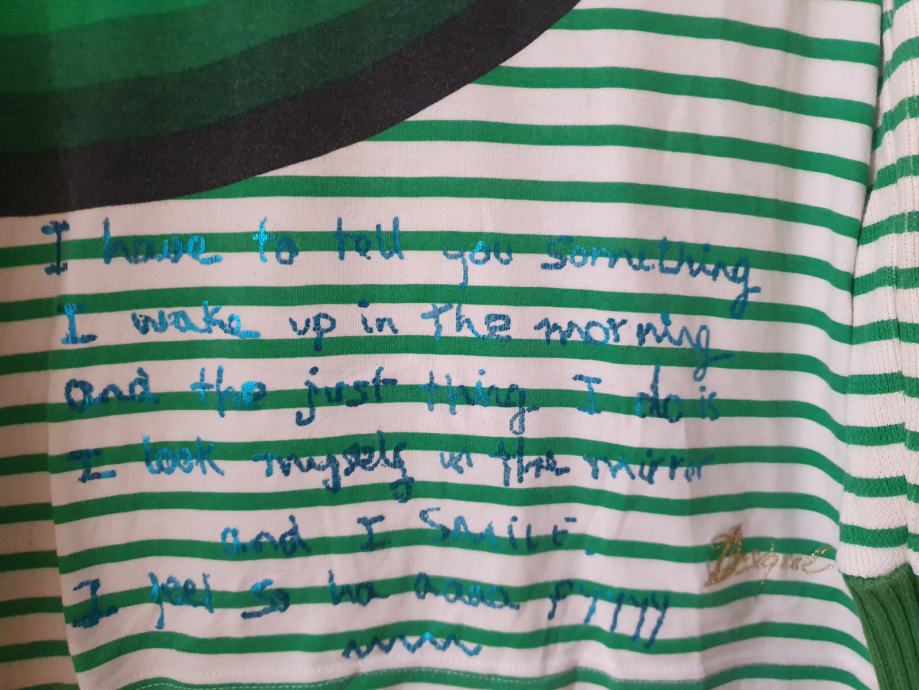 I have to tell you something
I wake up in the morning
and the just thing I do is
I look myself in the mirror
and I SMILE.
I feel so ha aaaa pyyyy